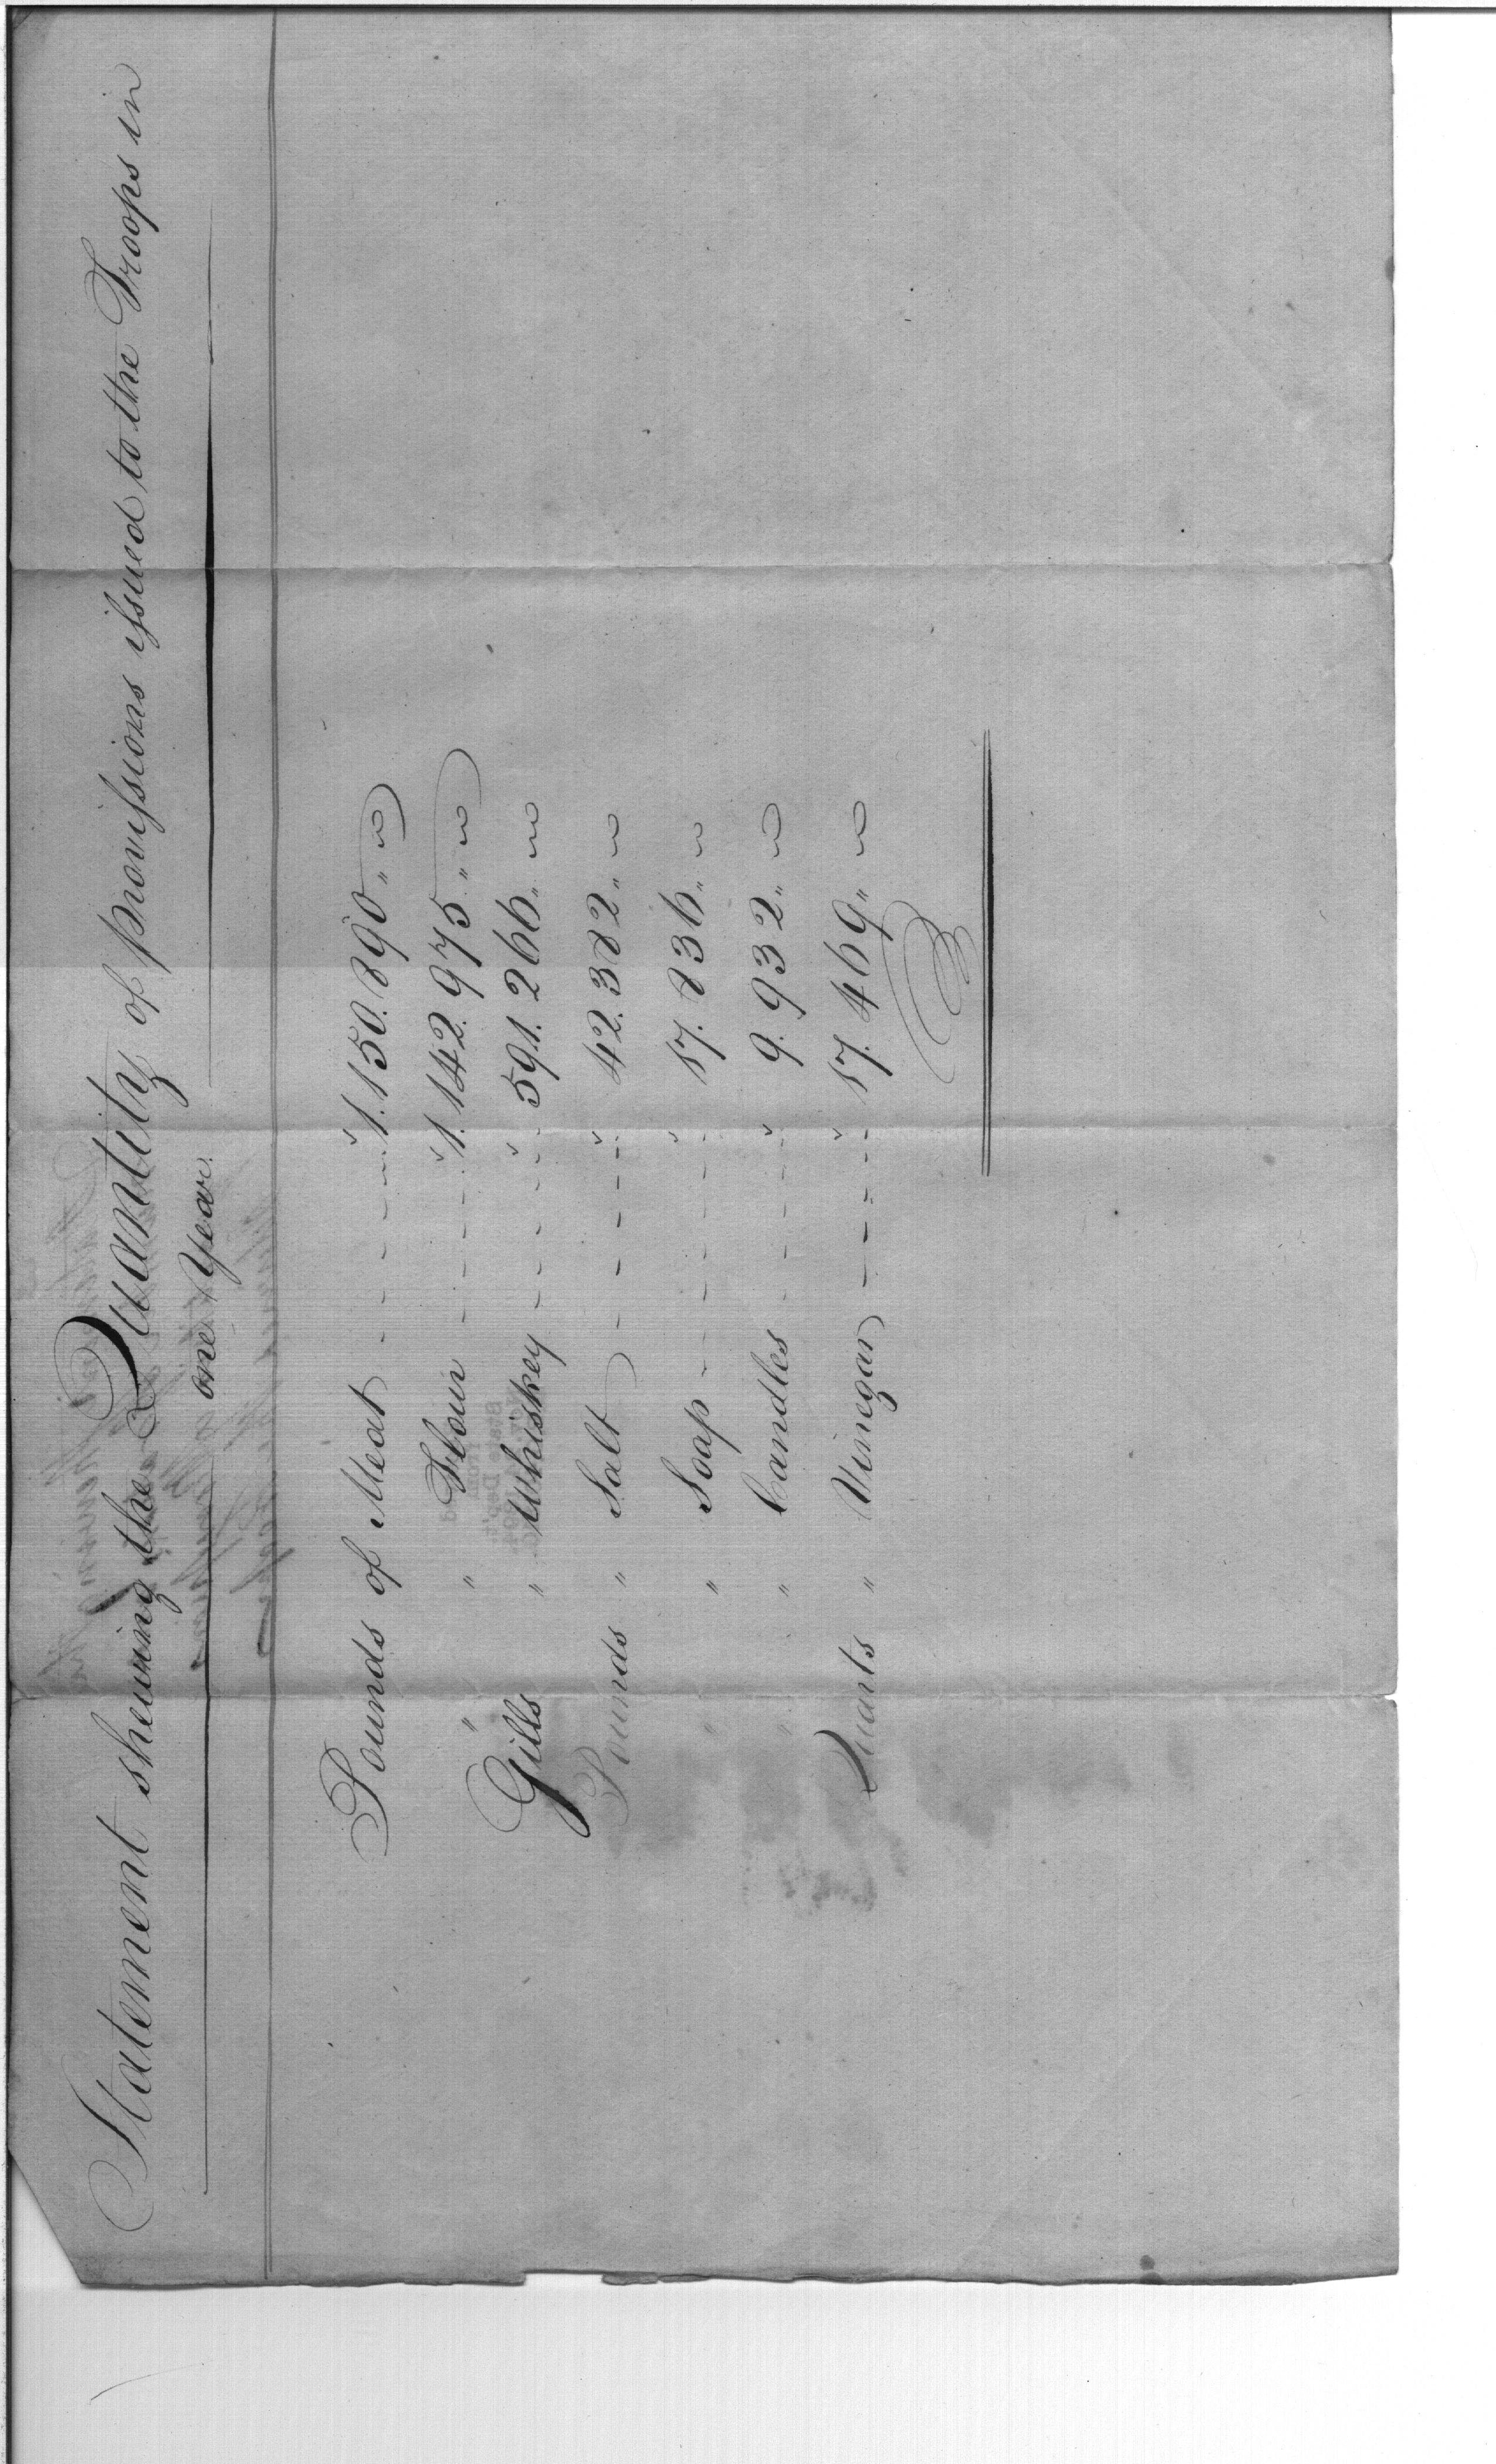 Statement shewing the Quantity of provissions issued to the Troops in
one Year.
Pounds of Meat - - - - 1.150.890 "
" " Flour - - - - 1.142.975 "
Gills " Whiskey - - - - 591.266 "
Pounds " Salt - - - - 42.382 "
" " Soap - - - - 17.836 "
" " Candles - - - - 9.932 "
Quarts " Vinegar - - - - 17.469 "